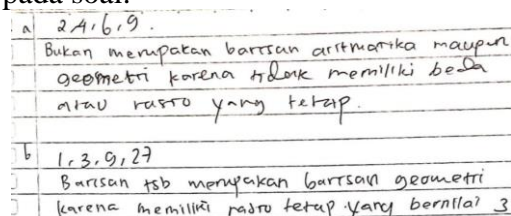 pada soal.
a 2,4,6,9.
Bukan merupakan barisan aritmatika maupun
geometri karena tidak memiliki beda
atau rasio yang tetap.
b 1,3,9,27
Barisan tsb merupakan barisan geometri
karena memiliki rasio tetap yang bernilai 3